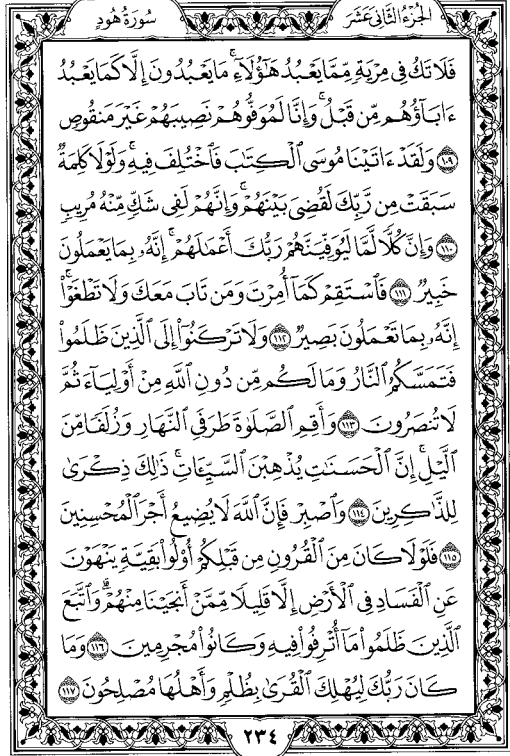 الجُزءُ الثَّانِى عَشَرَ
سُورَةُ هُودٍ
فَلَا تَكُ فِى مِرْيَةٍ مِّمَّا يَعْبُدُ هَٰٓؤُلَآءِ ۚ مَا يَعْبُدُونَ إِلَّا كَمَا يَعْبُدُ
ءَابَآؤُهُم مِّن قَبْلُ ۚ وَإِنَّا لَمُوَفُّوهُمْ نَصِيبَهُمْ غَيْرَ مَنقُوصٍ
١٠٩ وَلَقَدْ ءَاتَيْنَا مُوسَى ٱلْكِتَٰبَ فَٱخْتُلِفَ فِيهِ ۚ وَلَوْلَا كَلِمَةٌ
سَبَقَتْ مِن رَّبِّكَ لَقُضِىَ بَيْنَهُمْ ۚ وَإِنَّهُمْ لَفِى شَكٍّ مِّنْهُ مُرِيبٍ
١١٠ وَإِنَّ كُلًّا لَّمَّا لَيُوَفِّيَنَّهُمْ رَبُّكَ أَعْمَٰلَهُمْ ۚ إِنَّهُۥ بِمَا يَعْمَلُونَ
خَبِيرٌ ١١١ فَٱسْتَقِمْ كَمَآ أُمِرْتَ وَمَن تَابَ مَعَكَ وَلَا تَطْغَوْا۟ ۚ
إِنَّهُۥ بِمَا تَعْمَلُونَ بَصِيرٌ ١١٢ وَلَا تَرْكَنُوٓا۟ إِلَى ٱلَّذِينَ ظَلَمُوا۟
فَتَمَسَّكُمُ ٱلنَّارُ وَمَا لَكُم مِّن دُونِ ٱللَّهِ مِنْ أَوْلِيَآءَ ثُمَّ
لَا تُنصَرُونَ ١١٣ وَأَقِمِ ٱلصَّلَوٰةَ طَرَفَىِ ٱلنَّهَارِ وَزُلَفًا مِّنَ
ٱلَّيْلِ ۚ إِنَّ ٱلْحَسَنَٰتِ يُذْهِبْنَ ٱلسَّيِّـَٔاتِ ۚ ذَٰلِكَ ذِكْرَىٰ
لِلذَّٰكِرِينَ ١١٤ وَٱصْبِرْ فَإِنَّ ٱللَّهَ لَا يُضِيعُ أَجْرَ ٱلْمُحْسِنِينَ
١١٥ فَلَوْلَا كَانَ مِنَ ٱلْقُرُونِ مِن قَبْلِكُمْ أُو۟لُوا۟ بَقِيَّةٍ يَنْهَوْنَ
عَنِ ٱلْفَسَادِ فِى ٱلْأَرْضِ إِلَّا قَلِيلًا مِّمَّنْ أَنجَيْنَا مِنْهُمْ ۗ وَٱتَّبَعَ
ٱلَّذِينَ ظَلَمُوا۟ مَآ أُتْرِفُوا۟ فِيهِ وَكَانُوا۟ مُجْرِمِينَ ١١٦ وَمَا
كَانَ رَبُّكَ لِيُهْلِكَ ٱلْقُرَىٰ بِظُلْمٍ وَأَهْلُهَا مُصْلِحُونَ ١١٧
٢٣٤